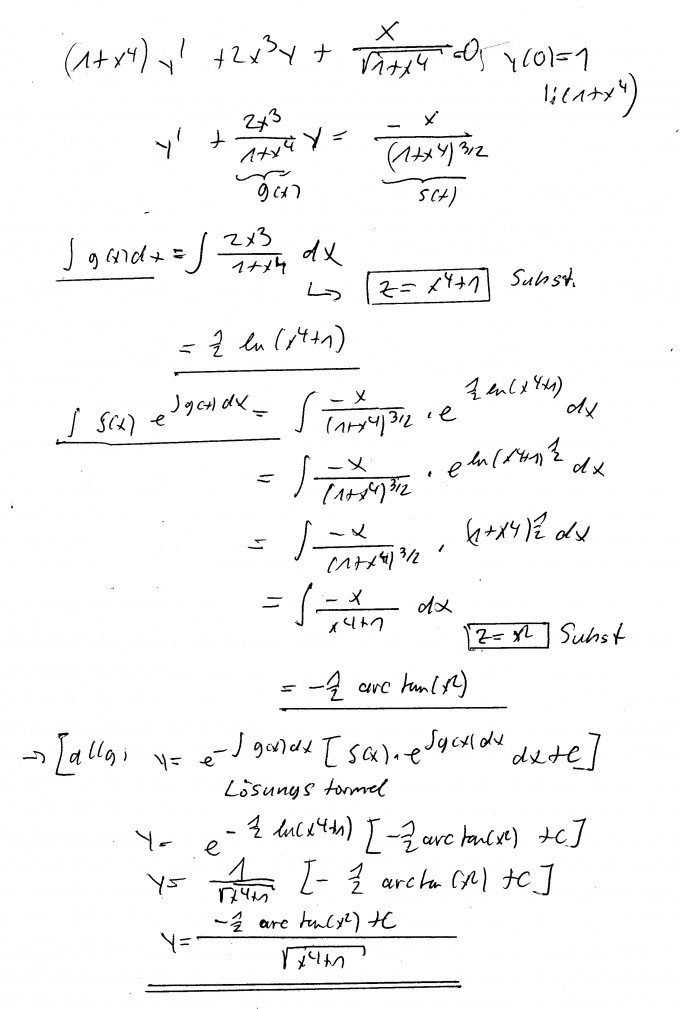 (1+x⁴) y' + 2x³y + x/√(1+x⁴) = 0; y(0)=1
|:(1+x⁴)
y' + 2x³/(1+x⁴) y = -x/(1+x⁴)^(3/2)
g(x) s(x)
∫ g(x)dx = ∫ 2x³/(1+x⁴) dx
↳ z = x⁴+1 Subst.
= 1/2 ln (x⁴+1)
∫ s(x) e^(∫g(x)dx) = ∫ -x/(1+x⁴)^(3/2) · e^(1/2 ln(x⁴+1)) dx
= ∫ -x/(1+x⁴)^(3/2) · e^(ln(x⁴+1)^(1/2)) dx
= ∫ -x/(1+x⁴)^(3/2) · (1+x⁴)^(1/2) dx
= ∫ -x/(x⁴+1) dx
z = x² Subst
= -1/2 arc tan(x²)
→ [allg: y = e^(-∫g(x)dx) [ s(x)·e^(∫g(x)dx) dx+c]
Lösungsformel
y = e^(-1/2 ln(x⁴+1)) [-1/2 arc tan(x²) +c]
y = 1/√(x⁴+1) [- 1/2 arc tan (x²) +c]
y = (-1/2 arc tan(x²) +c)/√(x⁴+1)